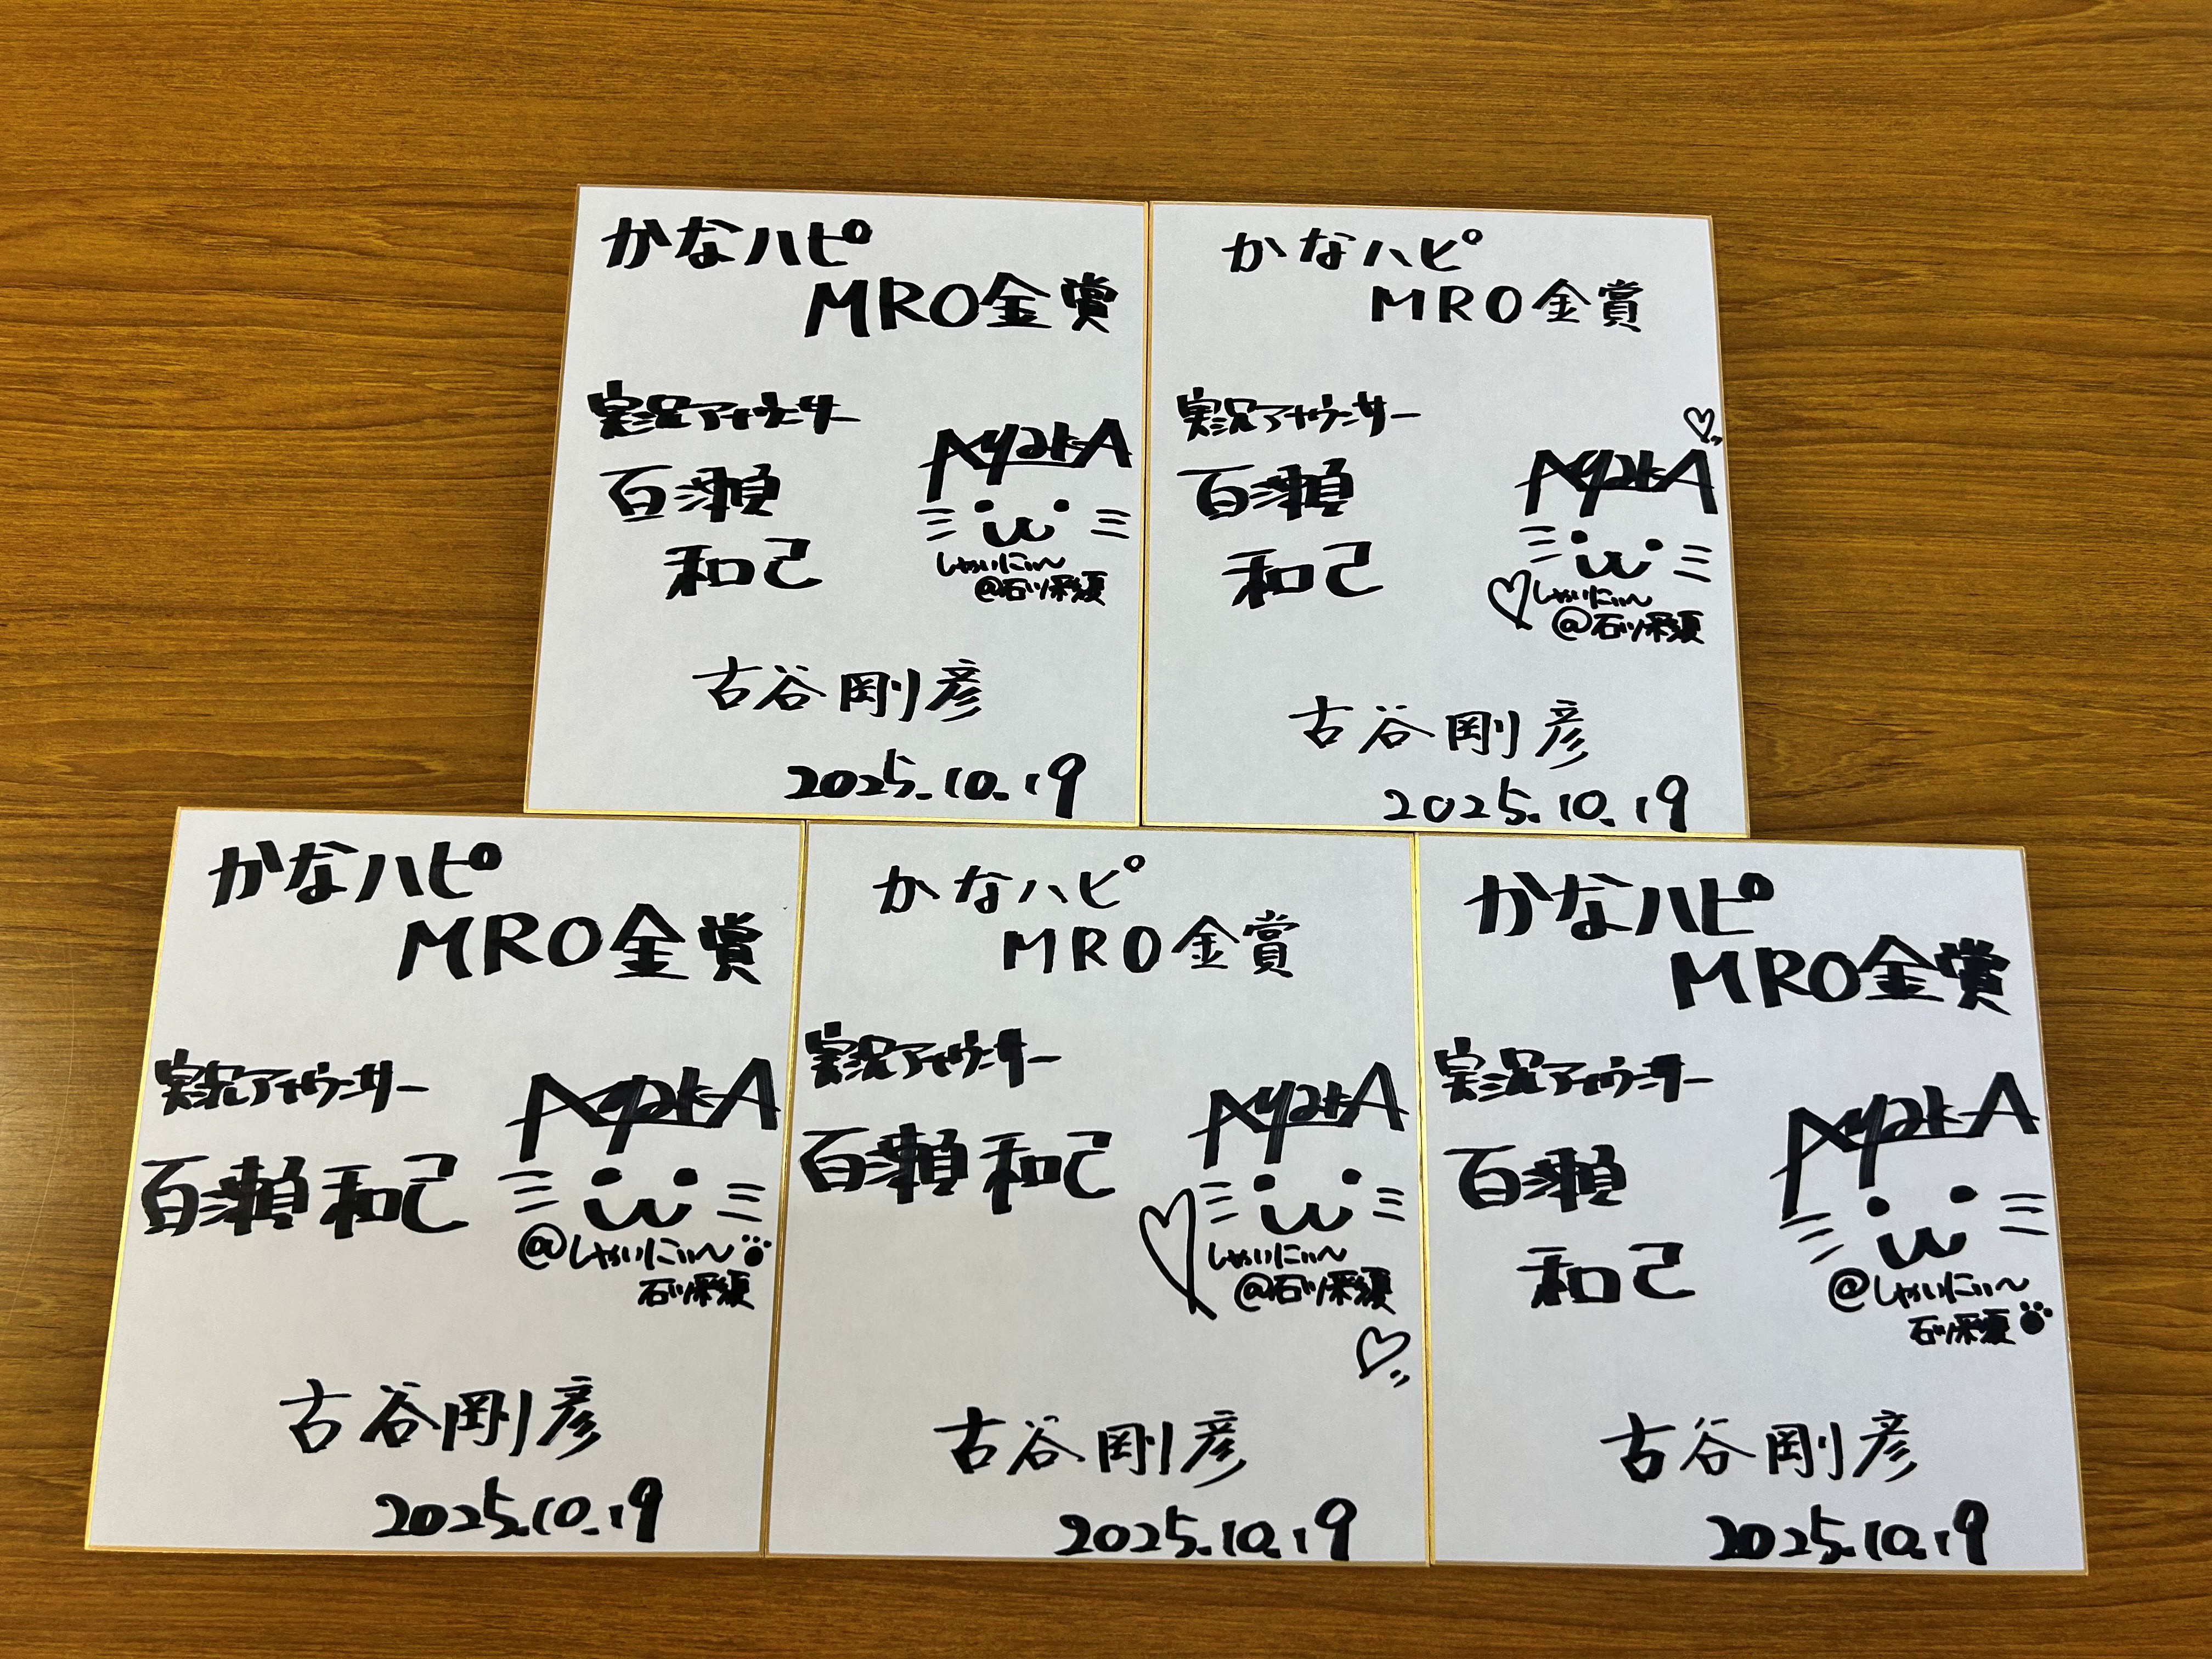 かなハピ
MRO金賞
実況アナウンサー
百瀬
和己
AyakA
しゃいにぃ〜
@石ツ彩夏
古谷剛彦
2025.10.19
かなハピ
MRO金賞
実況アナウンサー
百瀬
和己
AyakA
しゃいにぃ〜
@石ツ彩夏
古谷剛彦
2025.10.19
かなハピ
MRO金賞
実況アナウンサー
百瀬和己
AyakA
@しゃいにぃ〜
石ツ彩夏
古谷剛彦
2025.10.19
かなハピ
MRO金賞
実況アナウンサー
百瀬和己
AyakA
しゃいにぃ〜
@石ツ彩夏
古谷剛彦
2025.10.19
かなハピ
MRO金賞
実況アナウンサー
百瀬
和己
AyakA
@しゃいにぃ〜
石ツ彩夏
古谷剛彦
2025.10.19